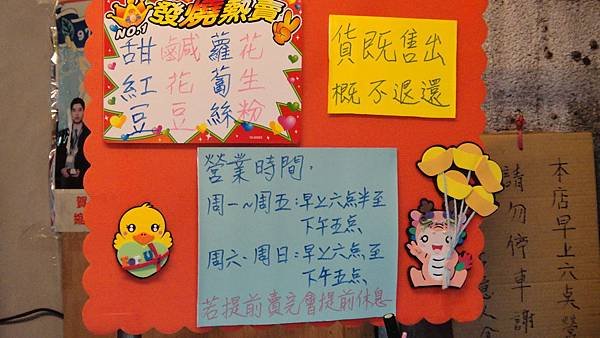 發燒熱賣
NO.1
甜 鹹 蘿 花
紅 花 蔔 生
豆 豆 絲 粉
貨既售出
概不退還
營業時間.
周一~周五:早上六点半至
下午五点
周六、周日:早上六点至
下午五点
若提前賣完會提前休息
本店早上六点營
請勿停車謝
賀